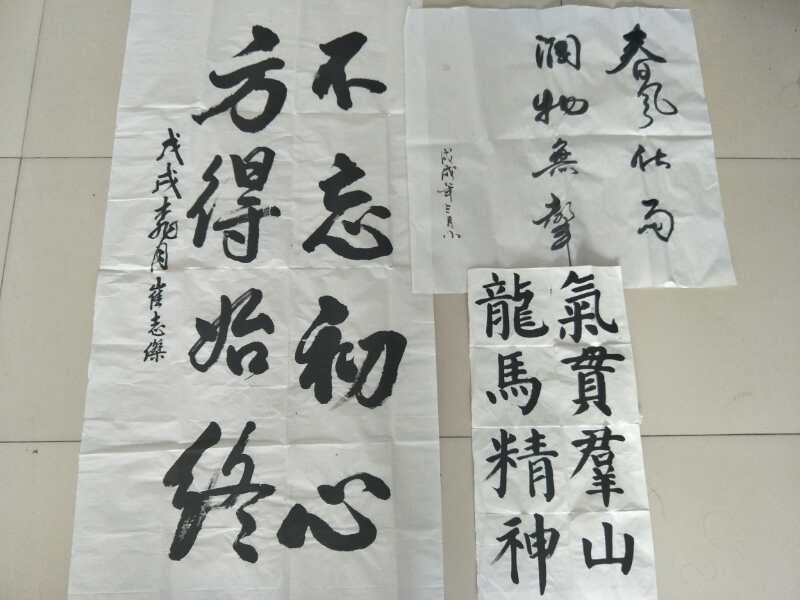 不忘初心
方得始终
戊戌翔月崔志傑
春风化雨
润物無聲
戊戌年三月小
氣貫羣山
龍馬精神